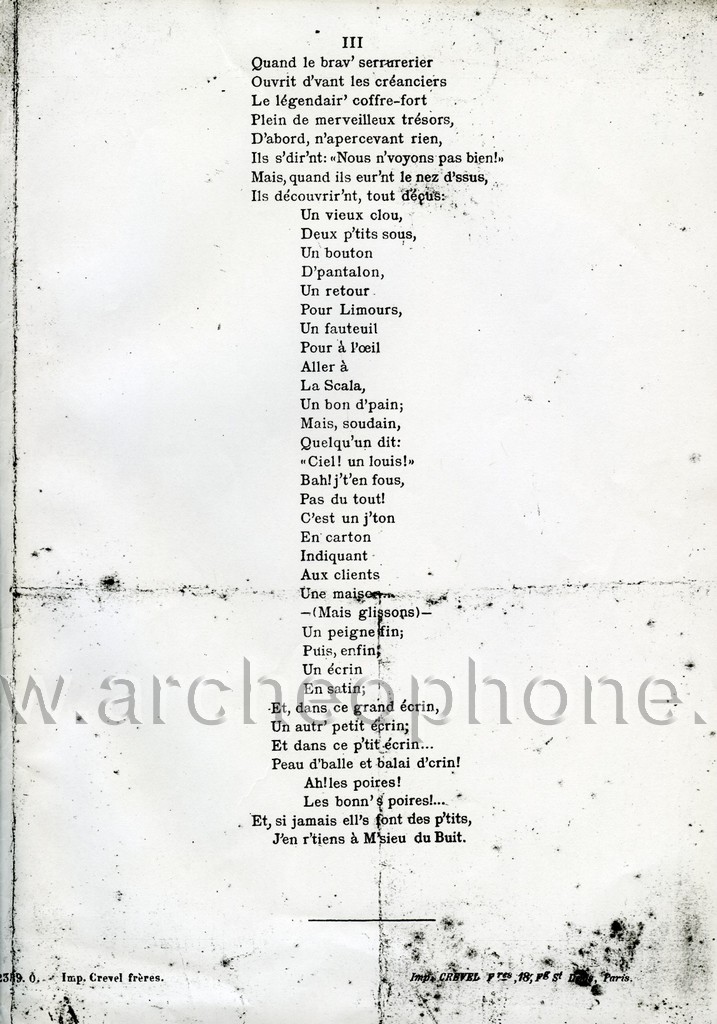 III
Quand le brav' serrurerier
Ouvrit d'vant les créanciers
Le légendair' coffre-fort
Plein de merveilleux trésors,
D'abord, n'apercevant rien,
Ils s'dir'nt: «Nous n'voyons pas bien!»
Mais, quand ils eur'nt le nez d'ssus,
Ils découvrir'nt, tout déçus:
Un vieux clou,
Deux p'tits sous,
Un bouton
D'pantalon,
Un retour
Pour Limours,
Un fauteuil
Pour à l'œil
Aller à
La Scala,
Un bon d'pain;
Mais, soudain,
Quelqu'un dit:
«Ciel! un louis!»
Bah! j't'en fous,
Pas du tout!
C'est un j'ton
En carton
Indiquant
Aux clients
Une maison...
—(Mais glissons)—
Un peigne fin;
Puis, enfin;
Un écrin
En satin;
Et, dans ce grand écrin,
Un autr' petit écrin;
Et dans ce p'tit écrin...
Peau d'balle et balai d'crin!
Ah! les poires!
Les bonn's poires!...
Et, si jamais ell's font des p'tits,
J'en r'tiens à M'sieu du Buit.
w.archeophone.
Imp. Crevel frères.
Imp. CREVEL Fres, 18, Fg St Paris.